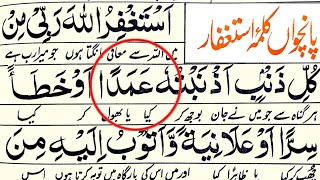 پانچواں کلمۂ استغفار
اَسْتَغْفِرُ اللهَ رَبِّيْ مِنْ
میں اللہ سے معافی مانگتا ہوں جو میرا رب ہے
كُلِّ ذَنْبٍ اَذْنَبْتُهٗ عَمَدًا اَوْ خَطَأً
ہر گناہ سے جو میں نے جان بوجھ کر کیا یا بھول کر کیا
سِرًّا اَوْ عَلَانِيَةً وَّاَتُوْبُ اِلَيْهِ مِنَ
چھپ کر کیا یا ظاہر کیا اور میں اس کی بارگاہ میں توبہ کرتا ہوں اس